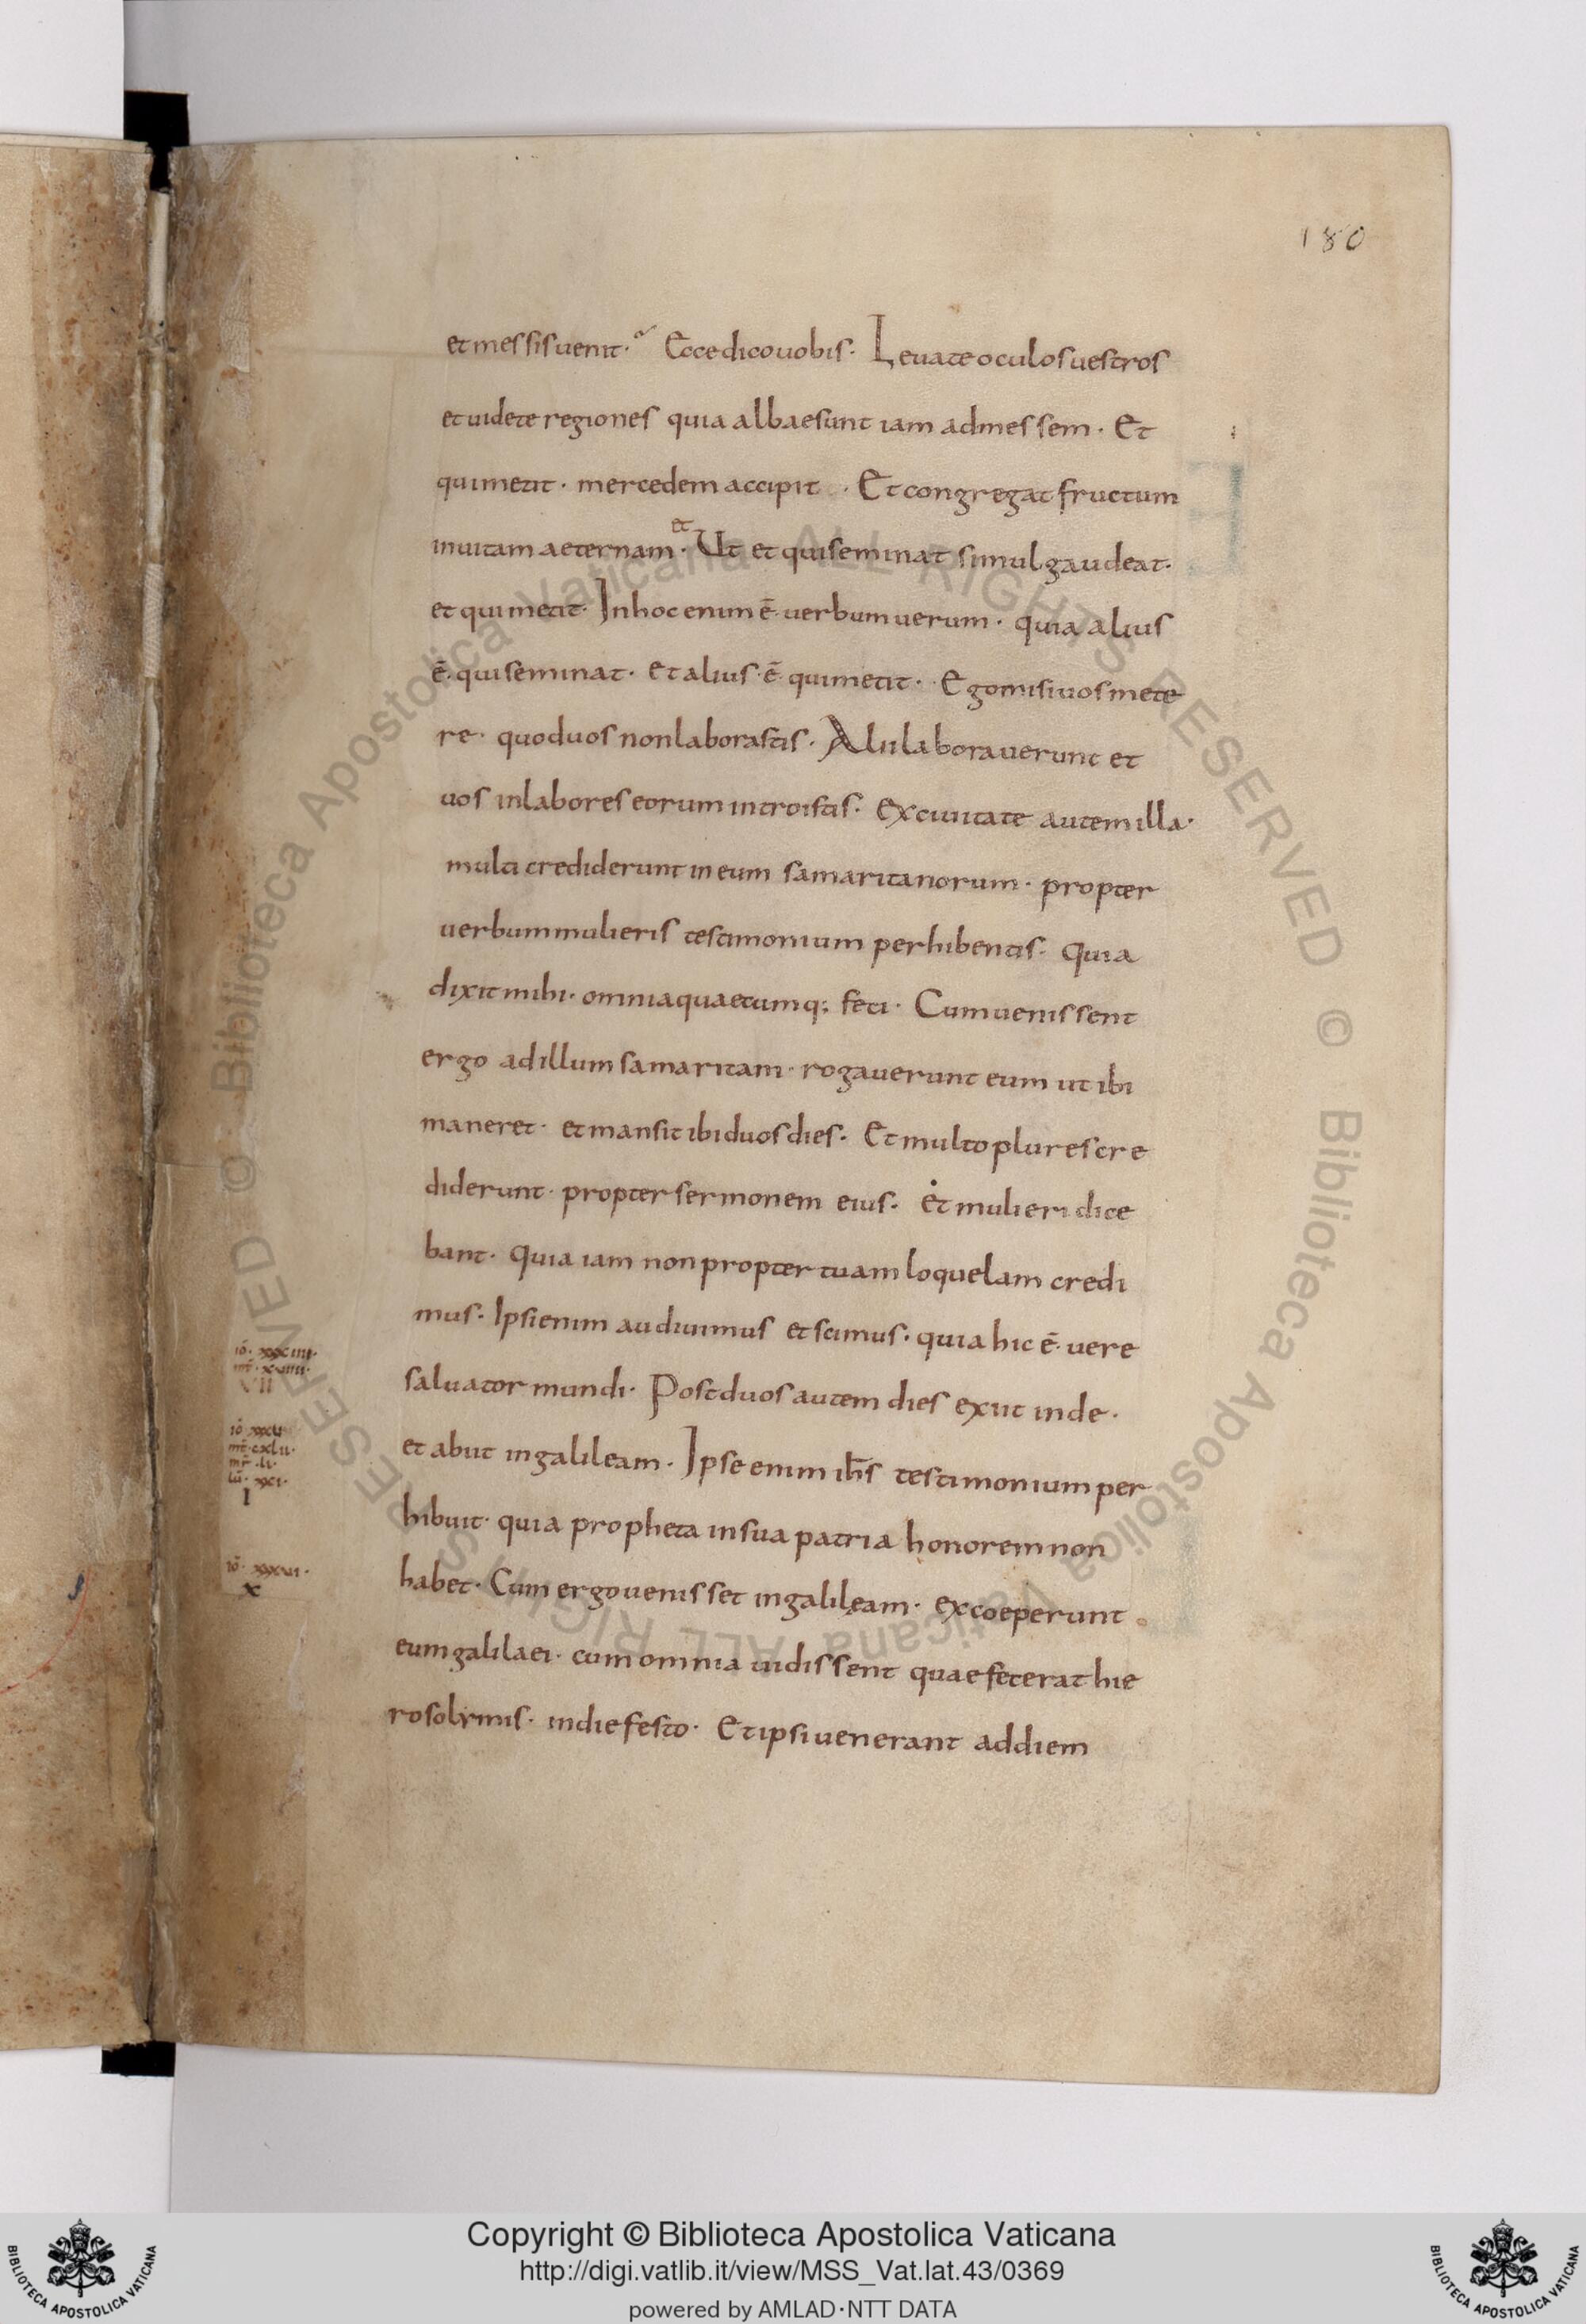 180
et messis uenit· Ecce dico uobis· Leuate oculos uestros
et uidete regiones quia albae sunt iam ad messem· Et
qui metit· mercedem accipit· Et congregat fructum
et
in uitam aeternam· Ut et qui seminat simul gaudeat·
et qui metit· In hoc enim ē uerbum uerum· quia alius
ē· qui seminat· et alius· ē· qui metit· Ego misi uos mete
re· quod uos non laborastis· Alii laborauerunt et
uos in labores eorum introistis· Ex ciuitate autem illa·
multi crediderunt in eum samaritanorum· propter
uerbum mulieris testimonium perhibentis· Quia
dixit mihi· omnia quaecumq; feci· Cum uenissent
ergo ad illum samaritani· rogauerunt eum ut ibi
maneret· et mansit ibi duos dies· Et multo plures cre
diderunt· propter sermonem eius· et mulieri dice
bant· Quia iam non propter tuam loquelam credi
mus· Ipsi enim audiuimus et scimus· quia hic ē· uere
saluator mundi· Post duos autem dies exiit inde·
et abiit in galileam· Ipse enim ihs̄ testimonium per
hibuit· quia propheta in sua patria honorem non
habet· Cum ergo uenisset in galileam· excoeperunt
eum galilaei· cum omnia uidissent quae fecerat hie
rosolymis· in die festo· Et ipsi uenerant ad diem
iō· xxxiiii·
VII
mt̄· cxlii·
mr̄· li·
lū· xxi·
I
iō· xxxvi·
X
Copyright © Biblioteca Apostolica Vaticana
http://digi.vatlib.it/view/MSS_Vat.lat.43/0369
powered by AMLAD·NTT DATA
BIBLIOTECA APOSTOLICA VATICANA
BIBLIOTECA APOSTOLICA VATICANA
© Biblioteca Apostolica Vaticana ALL RIGHTS RESERVED © Biblioteca Apostolica Vaticana ALL RIGHTS RESERVED